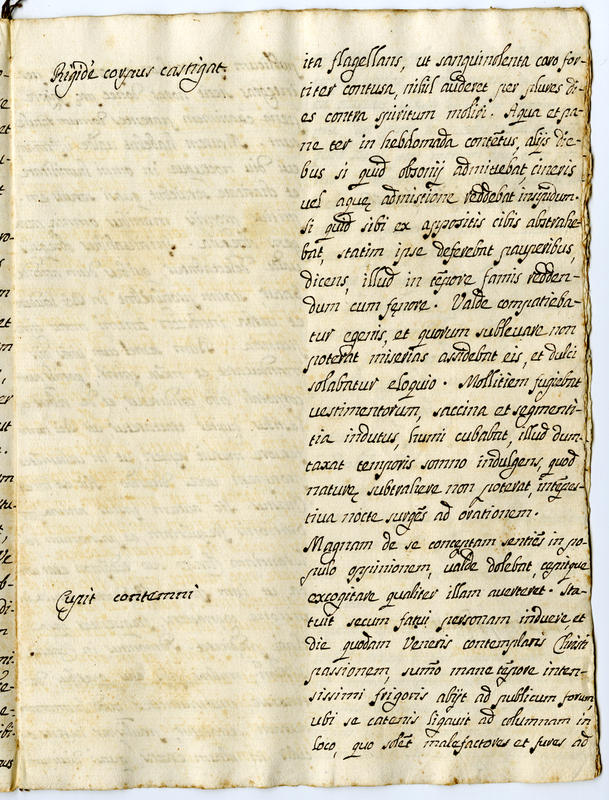 Rigidè corpus castigat.
ita flagellans, ut sanguinolenta caro for-
titer contusa, nihil auderet per plures di-
es contra spiritum moliri. Aqua et pa-
ne ter in hebdomada contẽtus, alijs die-
bus si quid obsonij admittebat, cineris
vel aquę admistione reddebat insipidum.
Si quid sibi ex appositis cibis abstrahe-
bat, statim ipse deferebat pauperibus,
dicens, illud in tẽpore famis redden-
dum cum fęnore. Valde compatieba-
tur egenis, et quorum sublevare non
poterat miserias assidebat eis, et dulci
solabatur eloquio. Mollitiem fugiebat
vestimentorum, saccina et segmenti-
tia indutus, humi cubabat, illud dum-
taxat temporis somno indulgens, quod
naturę subtrahere non poterat, intẽpes-
tiva nocte surgẽs ad orationem.
Magnam de se conceptam sentiẽs in po-
pulo opinionem, valde dolebat, cepitque
Cupit contemni
excogitare qualiter illam averteret. Sta-
tuit secum fatui personam induere, et
die quodam Veneris contemplans Christi
passionem, sum̃o mane tẽpore inten-
sissimi frigoris abijt ad publicum forum
ubi se catenis ligavit ad columnam in
loco, quo solẽt malefactores et fures ad